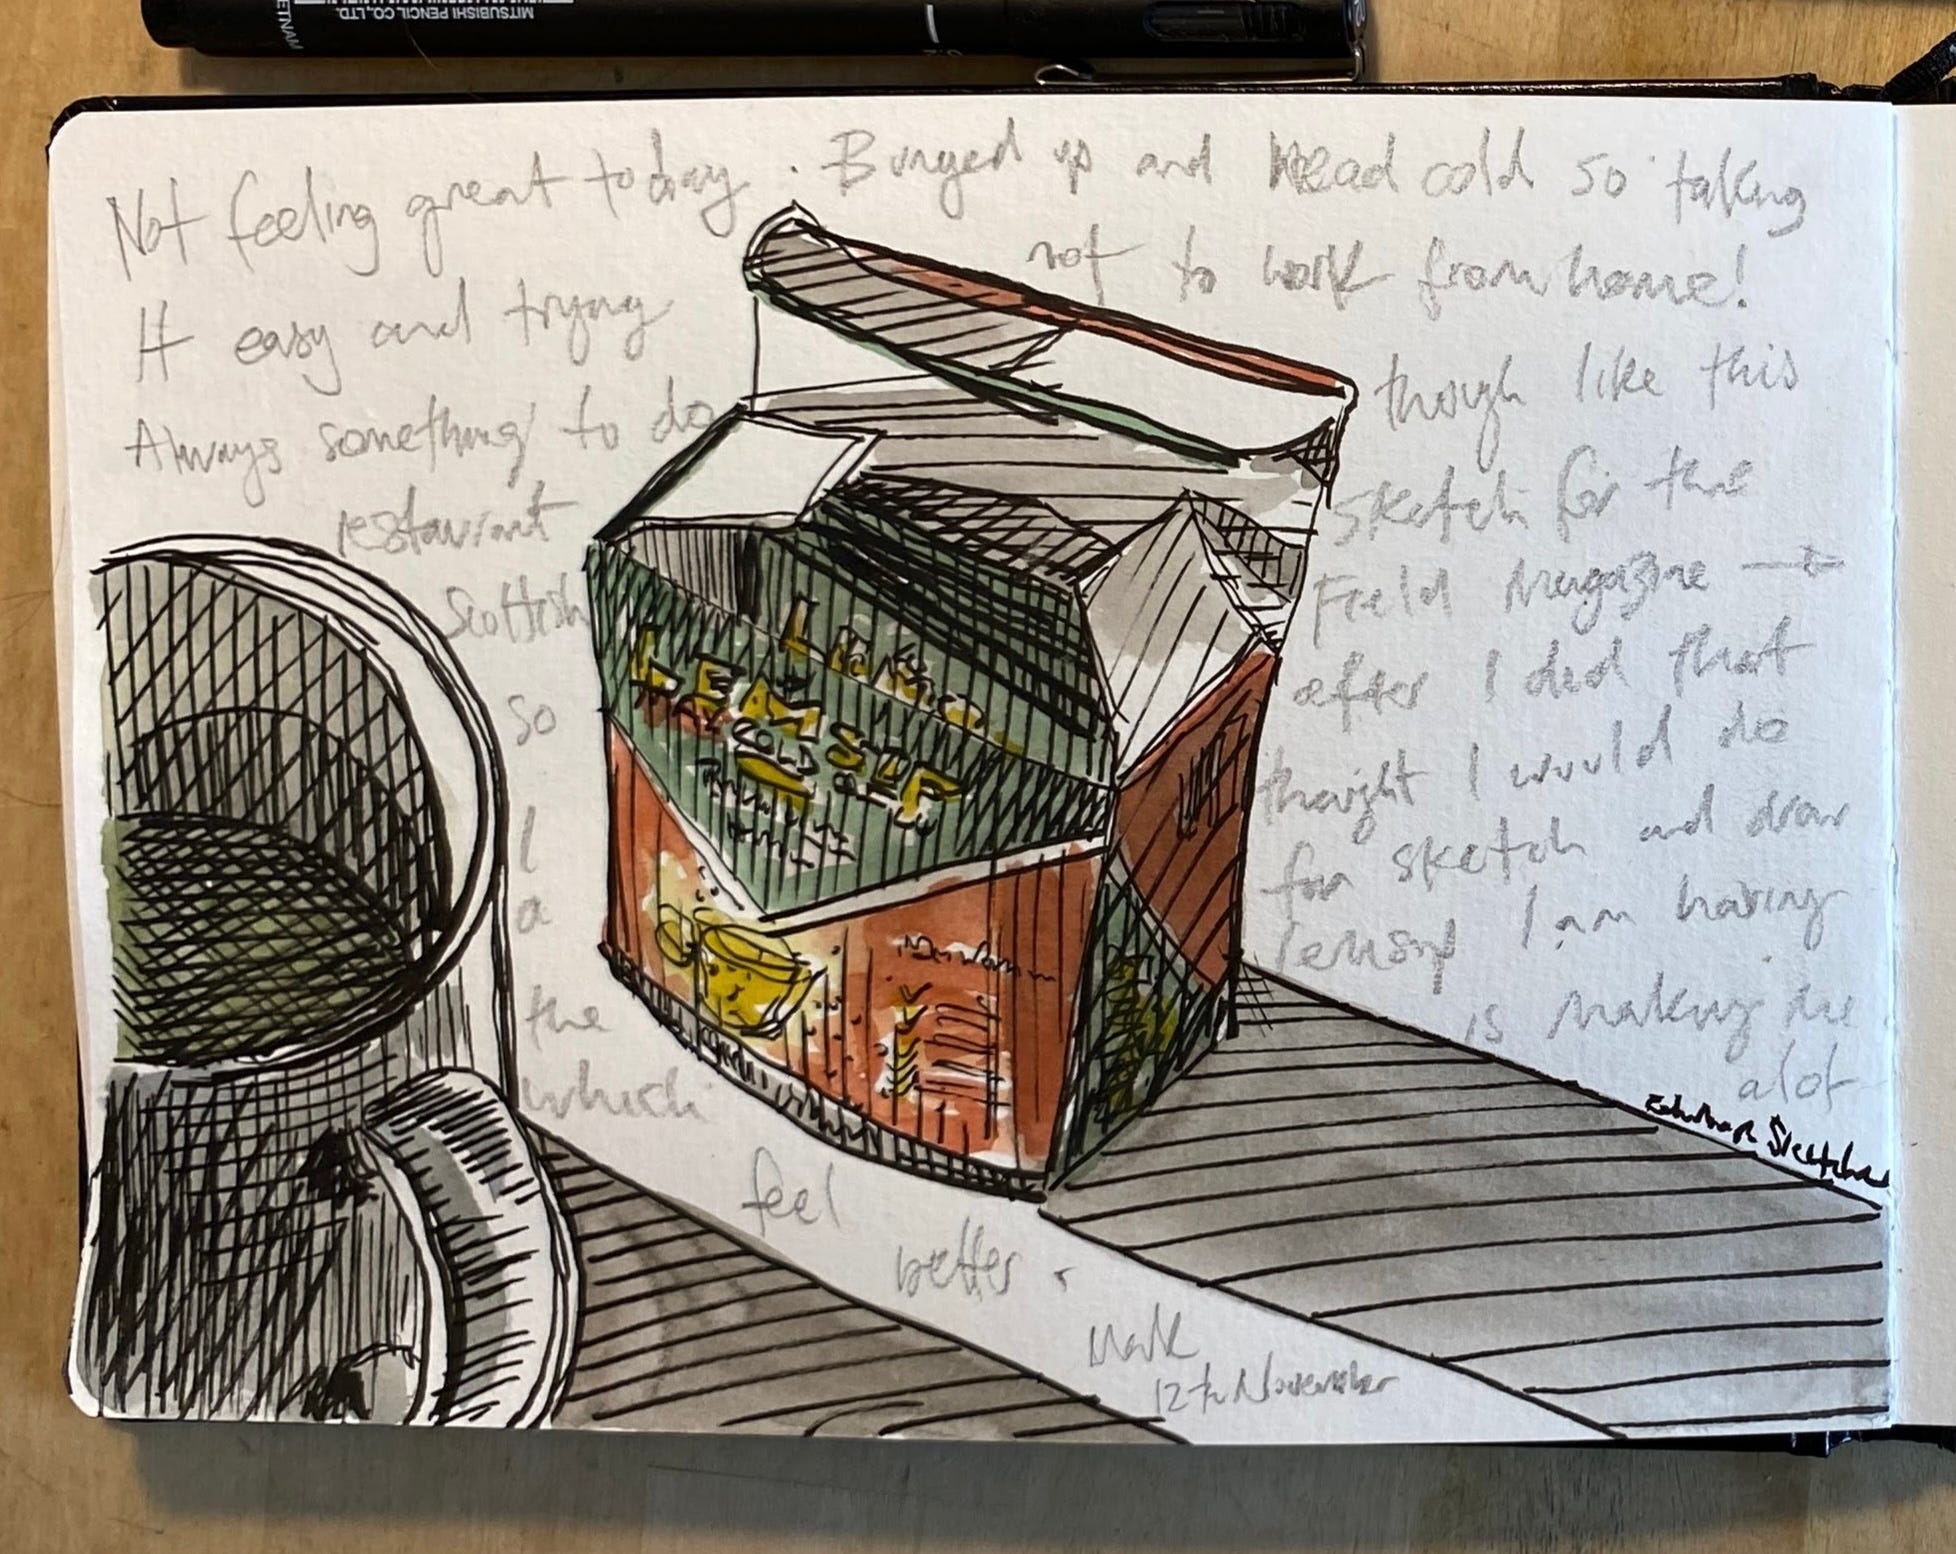 MITSUBISHI PENCIL CO., LTD.
Not feeling great today. Bunged up and Head cold so taking
It easy and trying not to work from home!
Always something to do though like this
restaurant sketch for the
Scottish Field Magazine →
so after I did that
I thought I would do
a fun sketch and draw
the lemsip I am having
which is making me
feel alot
better.
Mark
12th November
LEMSIP
COLD &
Edinburgh Sketcher